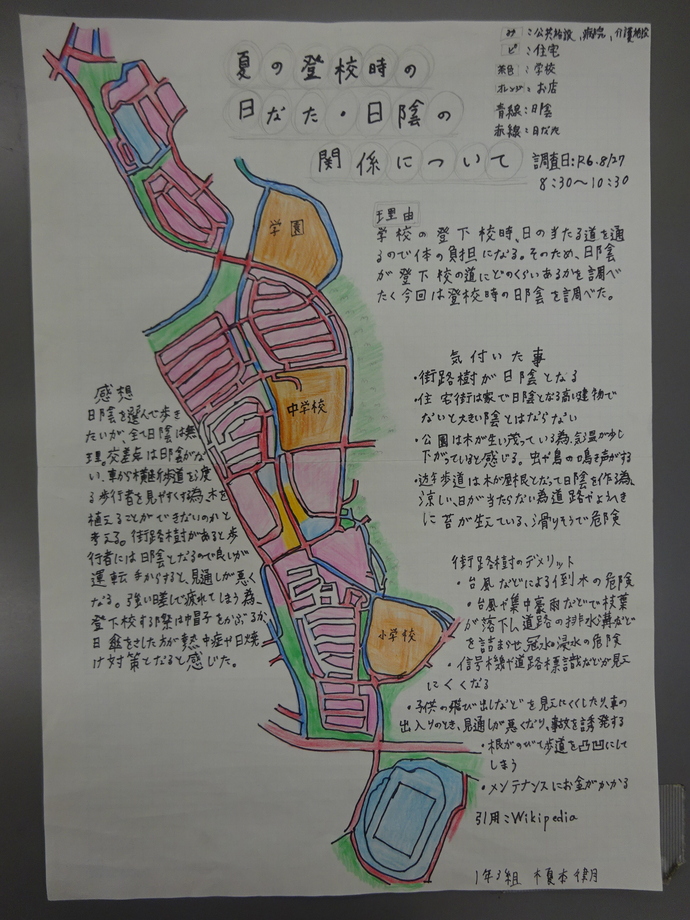 夏の登校時の
日なた・日陰の
関係について
み:公共施設、病院、介護施設
ピ:住宅
茶色:学校
オレンジ:お店
青線:日陰
赤線:日なた
調査日:R6.8/27
8:30〜10:30
理由
学校の登下校時、日の当たる道を通
るので体の負担になる。そのため、日陰
が登下校の道にどのくらいあるかを調べ
たく今回は登校時の日陰を調べた。
学園
中学校
小学校
気付いた事
・街路樹が日陰となる
・住宅街は家で日陰となる高い建物で
ないと大きい陰とはならない
・公園は木が生い茂っている為、気温が少し
下がっていると感じる。虫や鳥の鳴き声がする
歩道は木が屋根となって日陰を作る為、
涼しい、日が当たらない為道路やようへき
に苔が生えている、滑りそうで危険
街路樹のデメリット
・台風などによる倒木の危険
・台風や集中豪雨などで枝葉
が落下し道路の排水溝などと
を詰まらせ冠水や浸水の危険
・信号機や道路標識などが見え
にくくなる
・子供の飛び出しなどを見えにくくしたり、車の
出入りのとき、見通しが悪くなり、事故を誘発する
・根がのびて歩道を凸凹にして
しまう
・メンテナンスにお金がかかる
引用:Wikipedia
感想
日陰を選んで歩き
たいが、全て日陰は無
理。交差点は日陰がな
い、車から横断歩道を渡
る歩行者を見やすくする為、木を
植えることができないのかと
考える。街路樹があると歩
行者には日陰となるので良いが
運転手からすると、見通しが悪く
なる。強い日差しで疲れてしまう為、
登下校する際は帽子をかぶるか
日傘をさした方が熱中症や日焼
け対策となると感じた。
1年3組 榎本